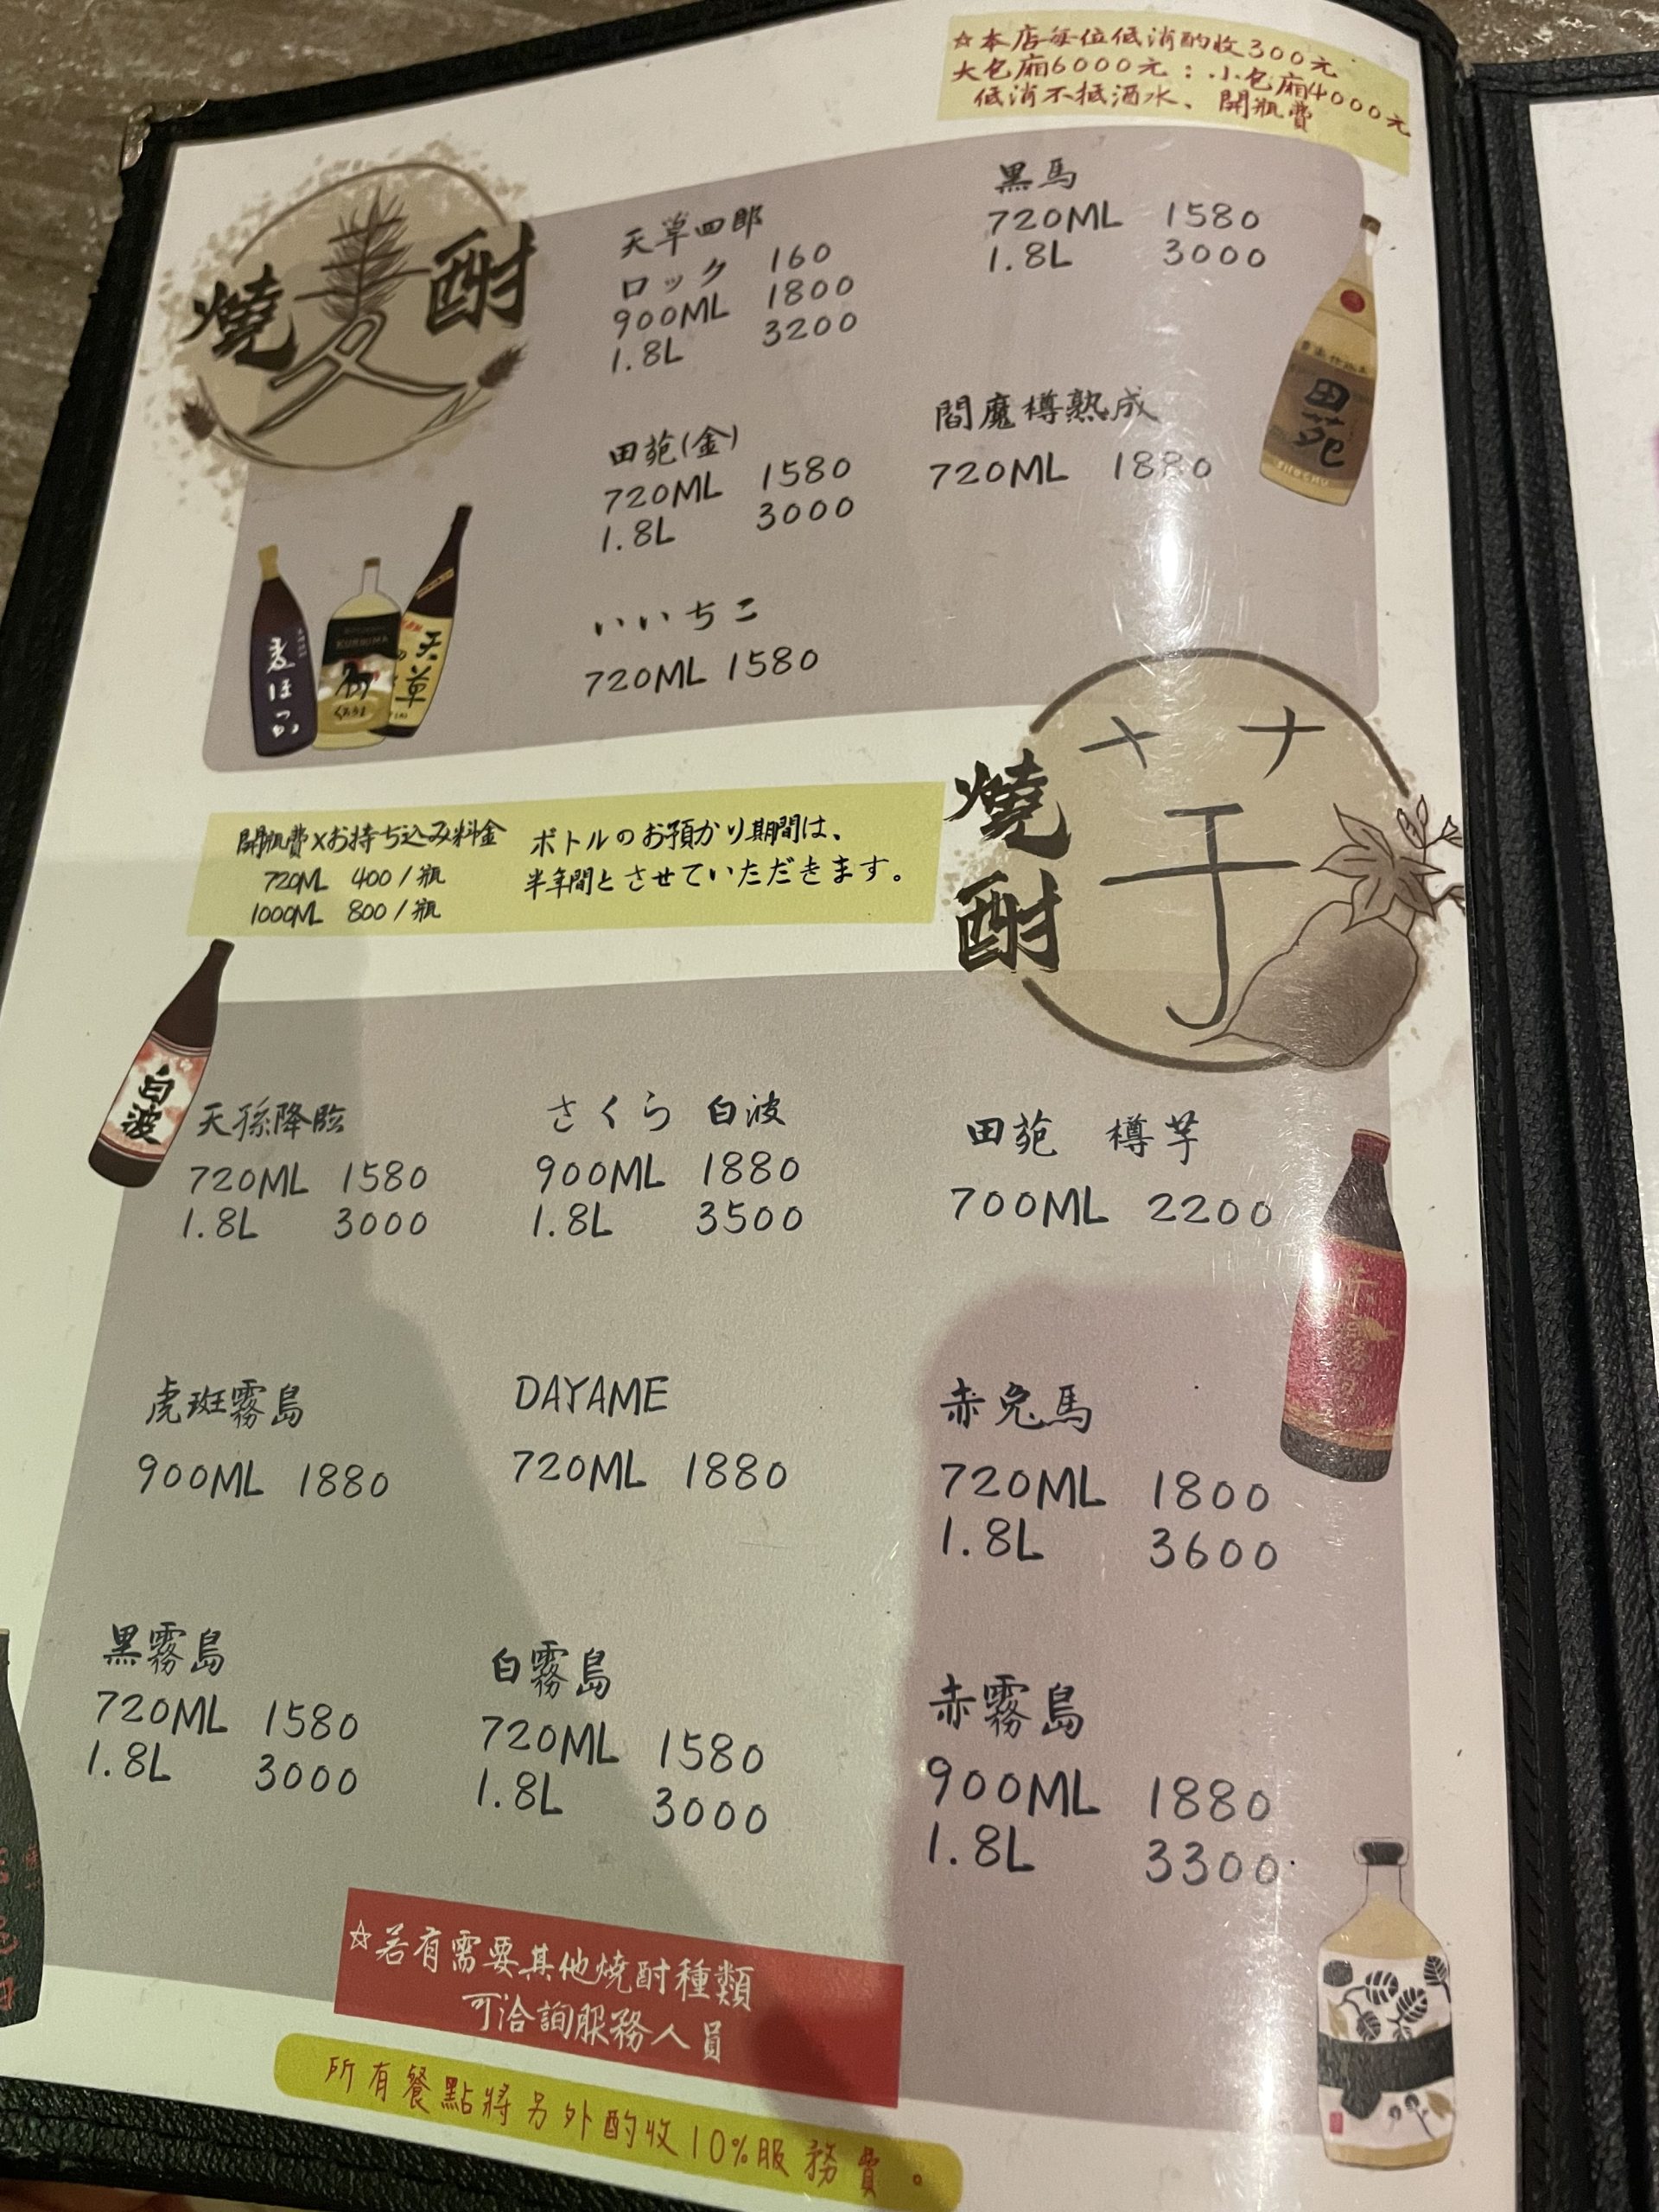 ☆本店每位低消酌收300元
大包廂6000元：小包廂4000元
低消不抵酒水、開瓶費
麦
燒酎
天草四郎
ロック 160
900ML 1800
1.8L 3200
黒馬
720ML 1580
1.8L 3000
田苑(金)
720ML 1580
1.8L 3000
閻魔樽熟成
720ML 1880
いいちこ
720ML 1580
田苑
SHOCHU
天草
開瓶費×お持ち込み料金
720ML 400/瓶
1000ML 800/瓶
ボトルのお預かり期間は、
半年間とさせていただきます。
芋
燒酎
白波
天孫降臨
720ML 1580
1.8L 3000
さくら 白波
900ML 1880
1.8L 3500
田苑 樽芋
700ML 2200
虎斑霧島
900ML 1880
DAYAME
720ML 1880
赤兔馬
720ML 1800
1.8L 3600
黒霧島
720ML 1580
1.8L 3000
白霧島
720ML 1580
1.8L 3000
赤霧島
900ML 1880
1.8L 3300
☆若有需要其他燒酎種類
可洽詢服務人員
所有餐點將另外酌收10%服務費。